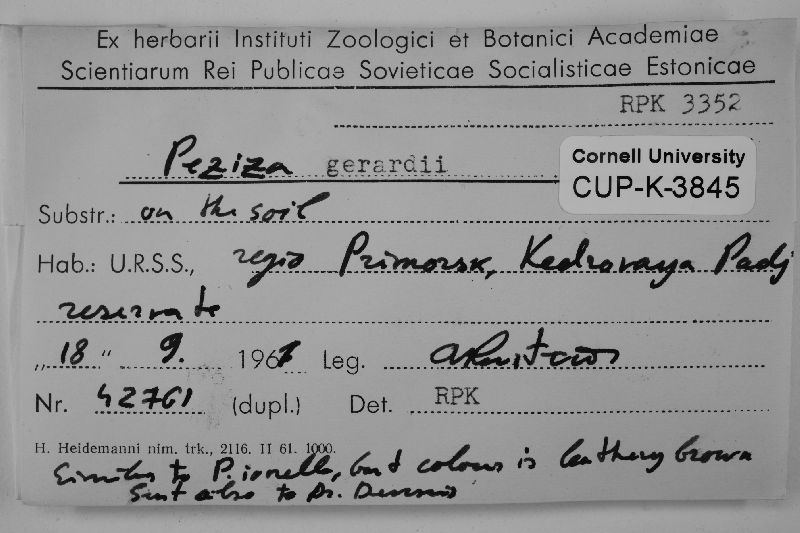 Ex herbarii Instituti Zoologici et Botanici Academiae
Scientiarum Rei Publicae Sovieticae Socialisticae Estonicae
RPK 3352
Peziza gerardii
Cornell University
CUP-K-3845
Substr.: on the soil
Hab.: U.R.S.S., regio Primorsk, Kedrovaya Padj
reservate
„18" 9. 1961 Leg.
Nr. 42761 (dupl.) Det. RPK
H. Heidemanni nim. trk., 2116. II 61. 1000.
Similar to P. ionella, but colour is leathery brown
Sent also to Dr. Dennis